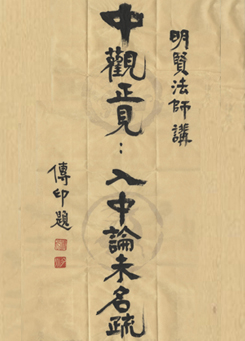 明賢法師講
中觀正見：入中論未名疏
傳印題